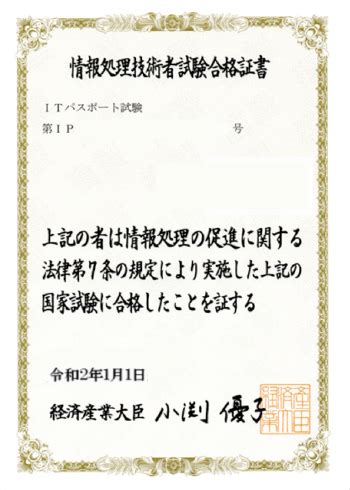 情報処理技術者試験合格証書
ITパスポート試験
第IP 号
上記の者は情報処理の促進に関する
法律第7条の規定により実施した上記の
国家試験に合格したことを証する
令和2年1月1日
経済産業大臣 小渕 優子